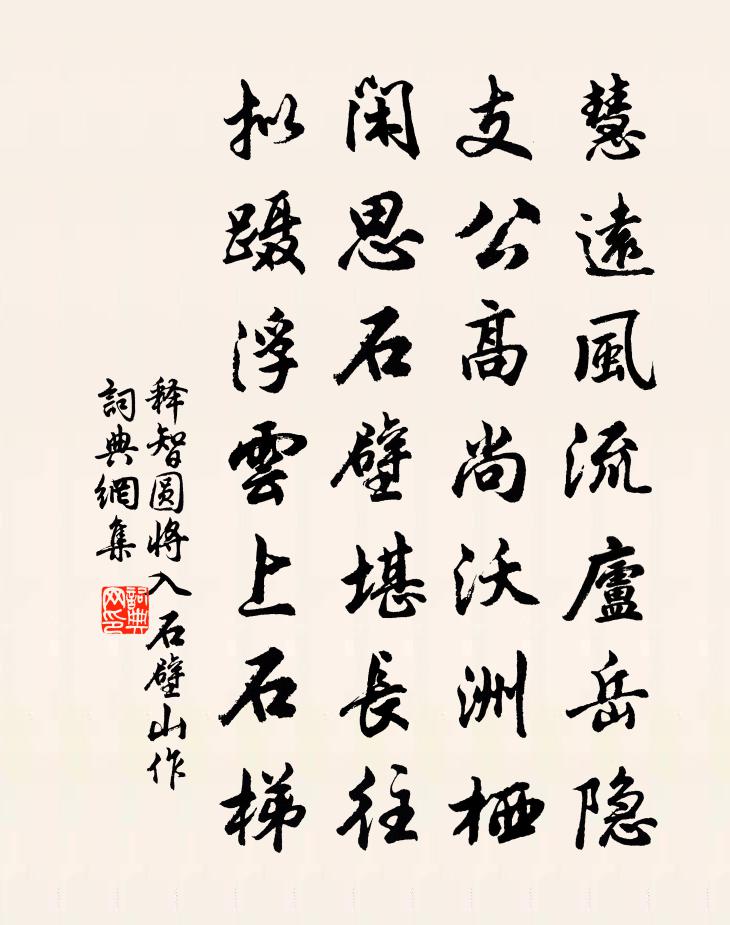 慧遠風流廬岳隐
支公高尚沃洲栖
閑思石壁堪長往
拟蹑浮雲上石梯
释智圆將入石壁山作
詞典網集
詞典网印